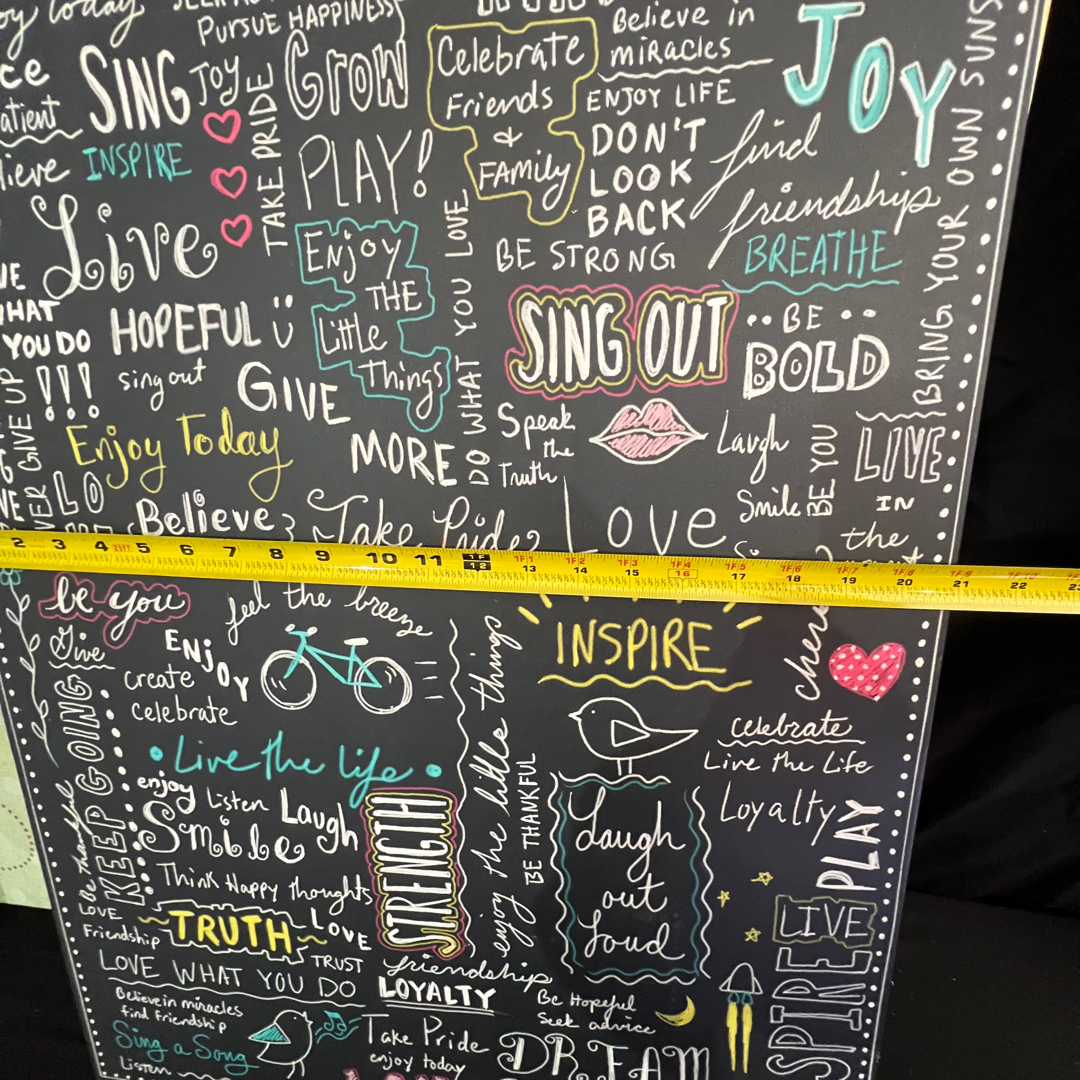 oy today
PURSUE HAPPINESS
Believe in
miracles
JOY
SING
JOY
TAKE PRIDE
GROW
Celebrate
Friends
&
FAMILY
ENJOY LIFE
DON'T
LOOK
BACK
find
friendship
BRING YOUR OWN SUNS
ce
atient
lieve
INSPIRE
PLAY!
LIVE
Enjoy
THE
Little
Things
DO WHAT YOU LOVE
BE STRONG
BREATHE
WHAT
YOU DO
!!!
HOPEFUL
SING OUT
BE
BOLD
sing out
GIVE
MORE
Speak
the
Truth
Laugh
Smile
BE YOU
LIVE
IN
the
VER GIVE UP
Enjoy Today
LO
Believe
Take Pride
Love
2 3 4 5 6 7 8 9 10 11 1F 12 1F1 13 1F2 14 1F3 15 1F4 16 1F5 17 1F6 18 1F7 19 1F8 20 1F9 21 22 23
be you
feel the breeze
INSPIRE
Give
ENJOY
create
celebrate
KEEP GOING
enjoy the little things
celebrate
Live the Life
Live the life
BE THANKFUL
Laugh
out
loud
Loyalty
PLAY
enjoy
Listen
Laugh
Smile
STRENGTH
Be thankful
Think Happy thoughts
LOVE
Friendship
TRUTH
LOVE
TRUST
LIVE
LOVE WHAT YOU DO
friendship
LOYALTY
Be Hopeful
Seek advice
Believe in miracles
find Friendship
Sing a Song
Listen
Take Pride
enjoy today
DREAM
SPIRE